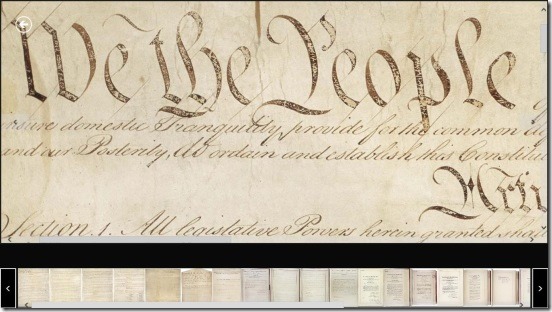 We the People
insure domestic Tranquility, provide for the common
and our Posterity, do ordain and establish this Constitu
Arti
Section. 1. All legislative Powers herein granted shal